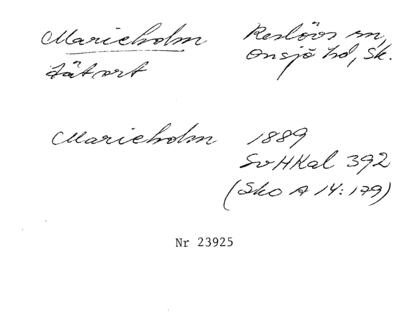 Marieholm Reslövs sn,
tätort Onsjö hd, Sk.
Marieholm 1889
SvHKal 392
(Sko A 14:179)
Nr 23925